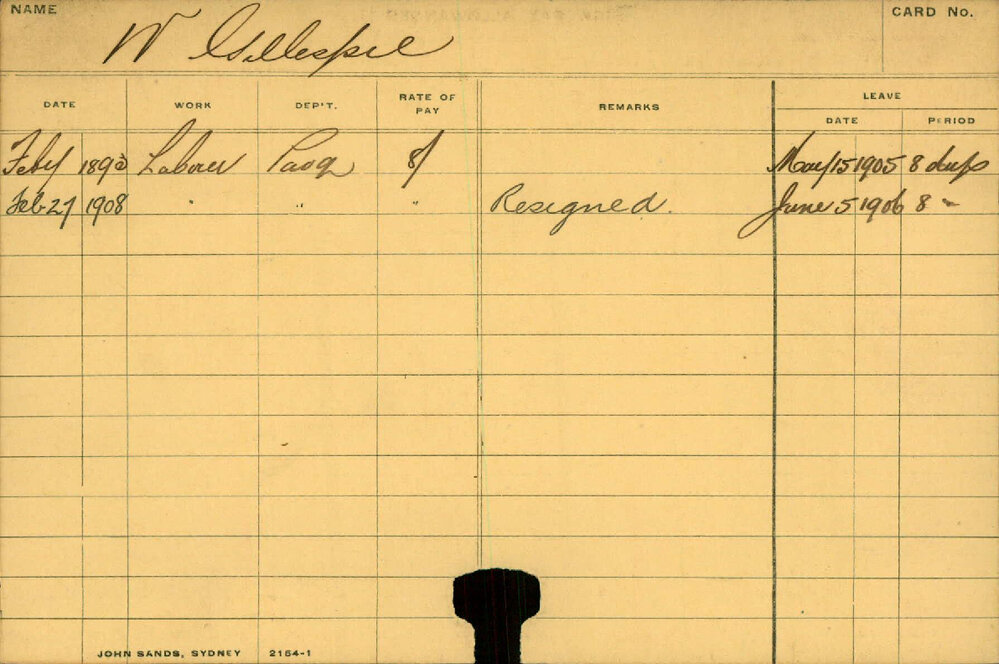 NAME
CARD No.
W Gillespie
DATE WORK DEP'T. RATE OF PAY REMARKS LEAVE
DATE PERIOD
Feby Laborer 8/ May 15 1905 8 days
Feb 27 1908 " " " Resigned. June 5 1906 8 "
JOHN SANDS, SYDNEY 2154-1